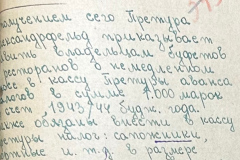 получением сего Претура
лександрфельд приказывает
явить владельцам буфетов
ресторанов о немедленном
носе в кассу Претуры аванса
налогов в сумме 1000 марок
счет 1943/44 будж. года.
кже обязаны внести в кассу
етуры налог: сапожники,
ртные и т.д. в размере